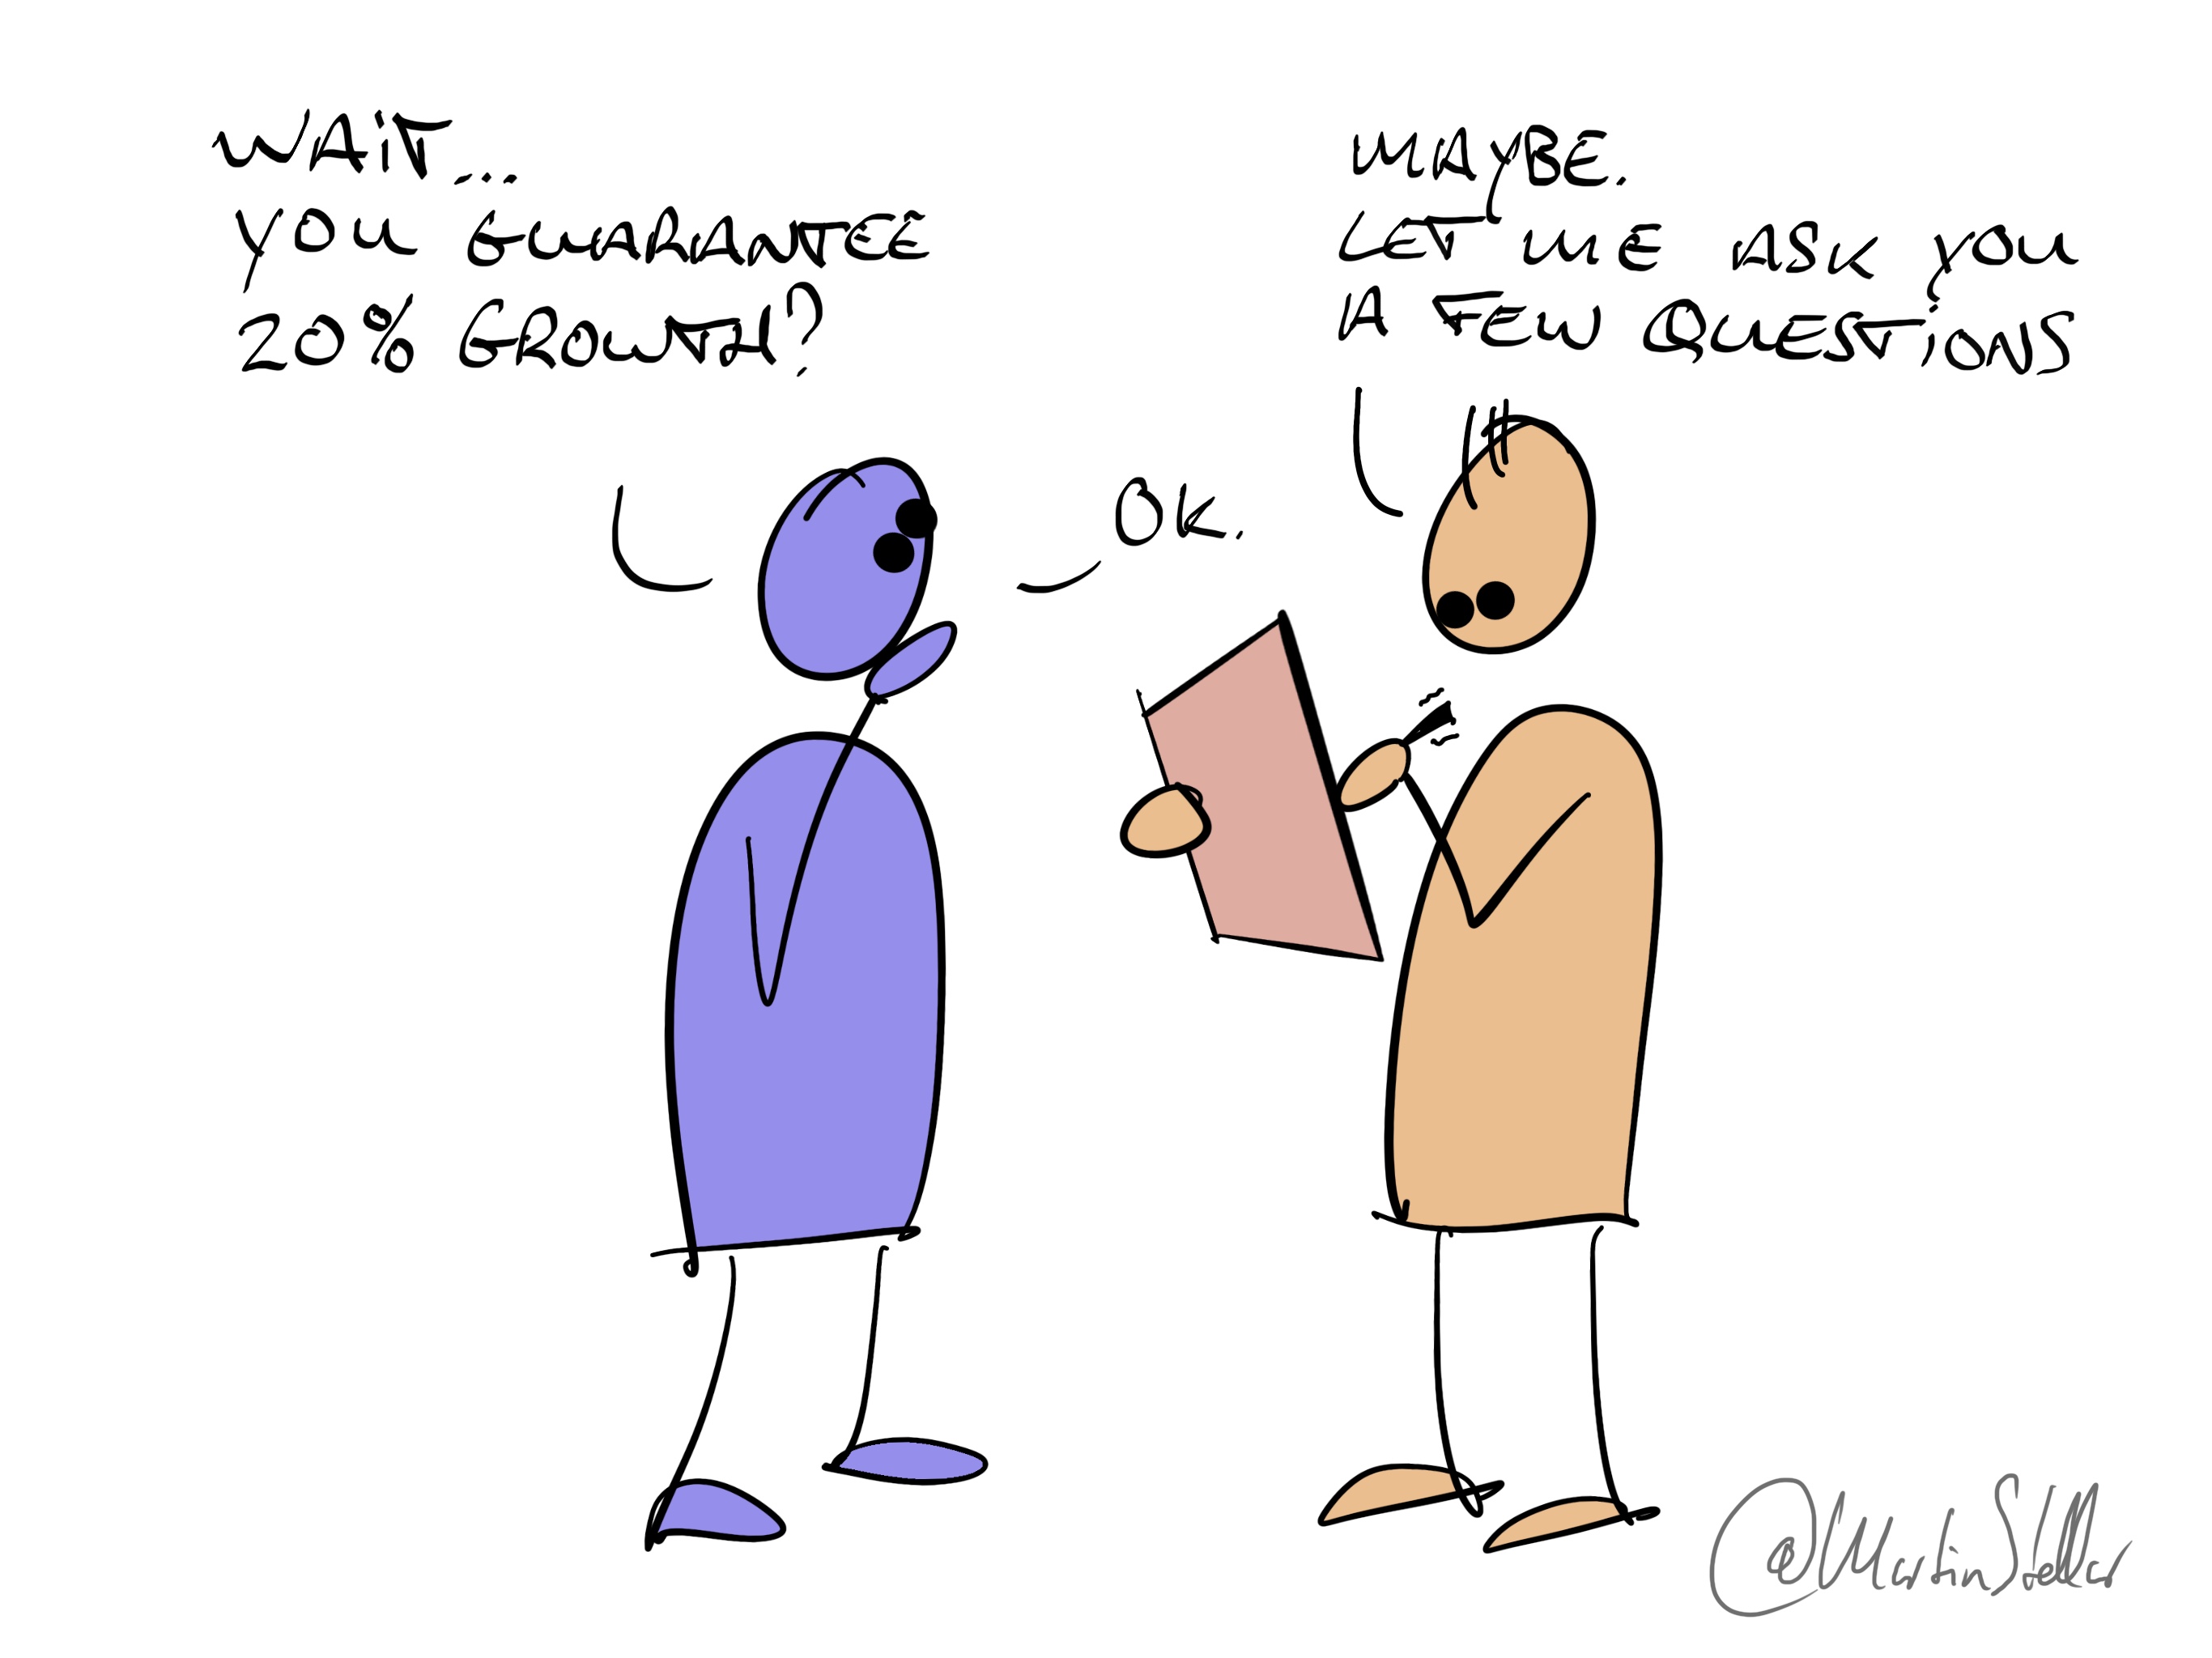 WAIT...
YOU GUARANTEE
20% GROWTH?
MAYBE.
LET ME ASK YOU
A FEW QUESTIONS
OK.
@MartinStellar